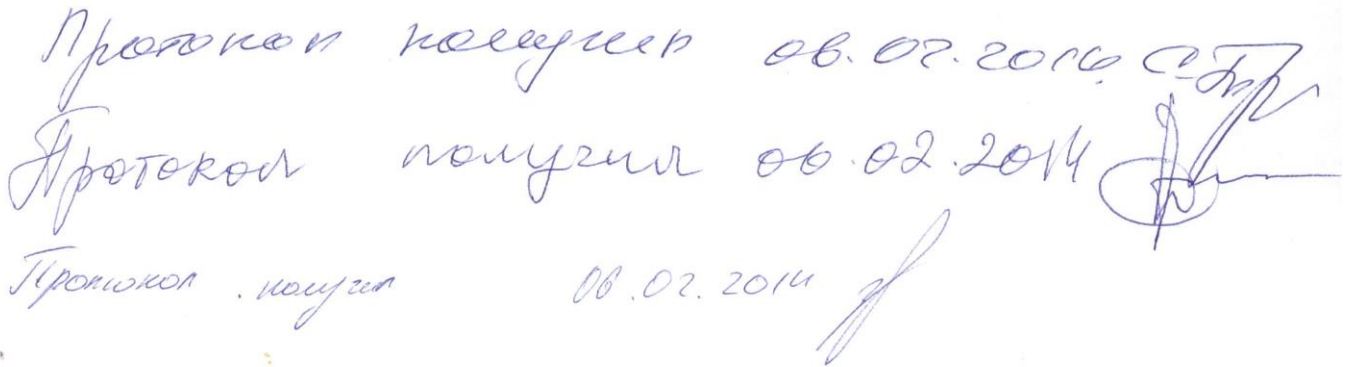 Протокол получил 06.02.2014
Протокол получил 06.02.2014
Протокол получил 06.02.2014